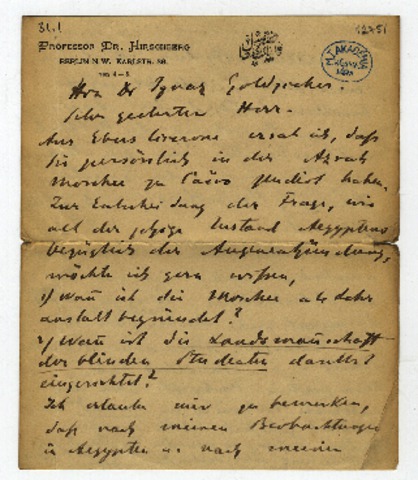 31.1
12751
PROFESSOR DR. HIRSCHBERG
BERLIN N.W. KARLSTR. 36.
M. T. AKADÉMIA
Hrn Dr Ignaz Goldziher.
Sehr geehrter Herr.
Aus Ebers Cicerone ersah ich, daß
Sie persönlich in der Azhar
Moschee zu Cairo studiert haben.
Zur Entscheidung der Frage, wie
alt der jetzige Zustand Aegyptens
bezüglich der Augenentzündung,
möchte ich gern wissen,
1) Wañ ist die Moschee als Lehr
anstalt begründet?
2) Wañ ist die Landsmañschaft
der blinden Studenten daselbst
eingerichtet?
Ich erlaube mir zu bemerken,
daß nach meinen Beobachtungen
in Aegypten u. nach meinen